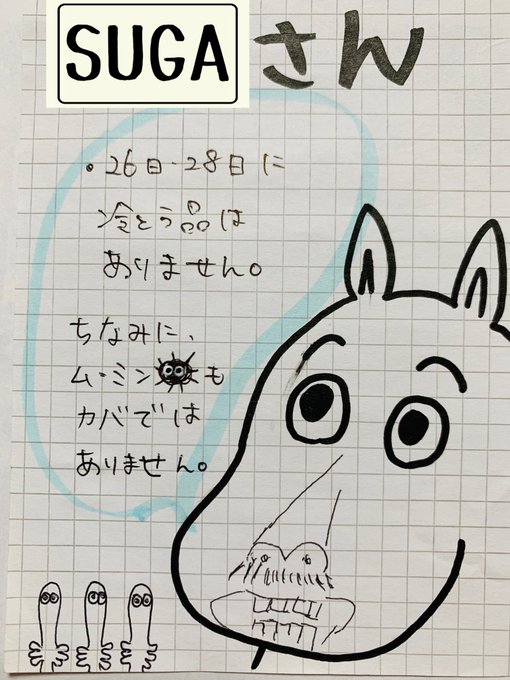 SUGAさん
・26日・28日に
冷とう品は
ありません。
ちなみに、
ム・ミンも
カバでは
ありません。